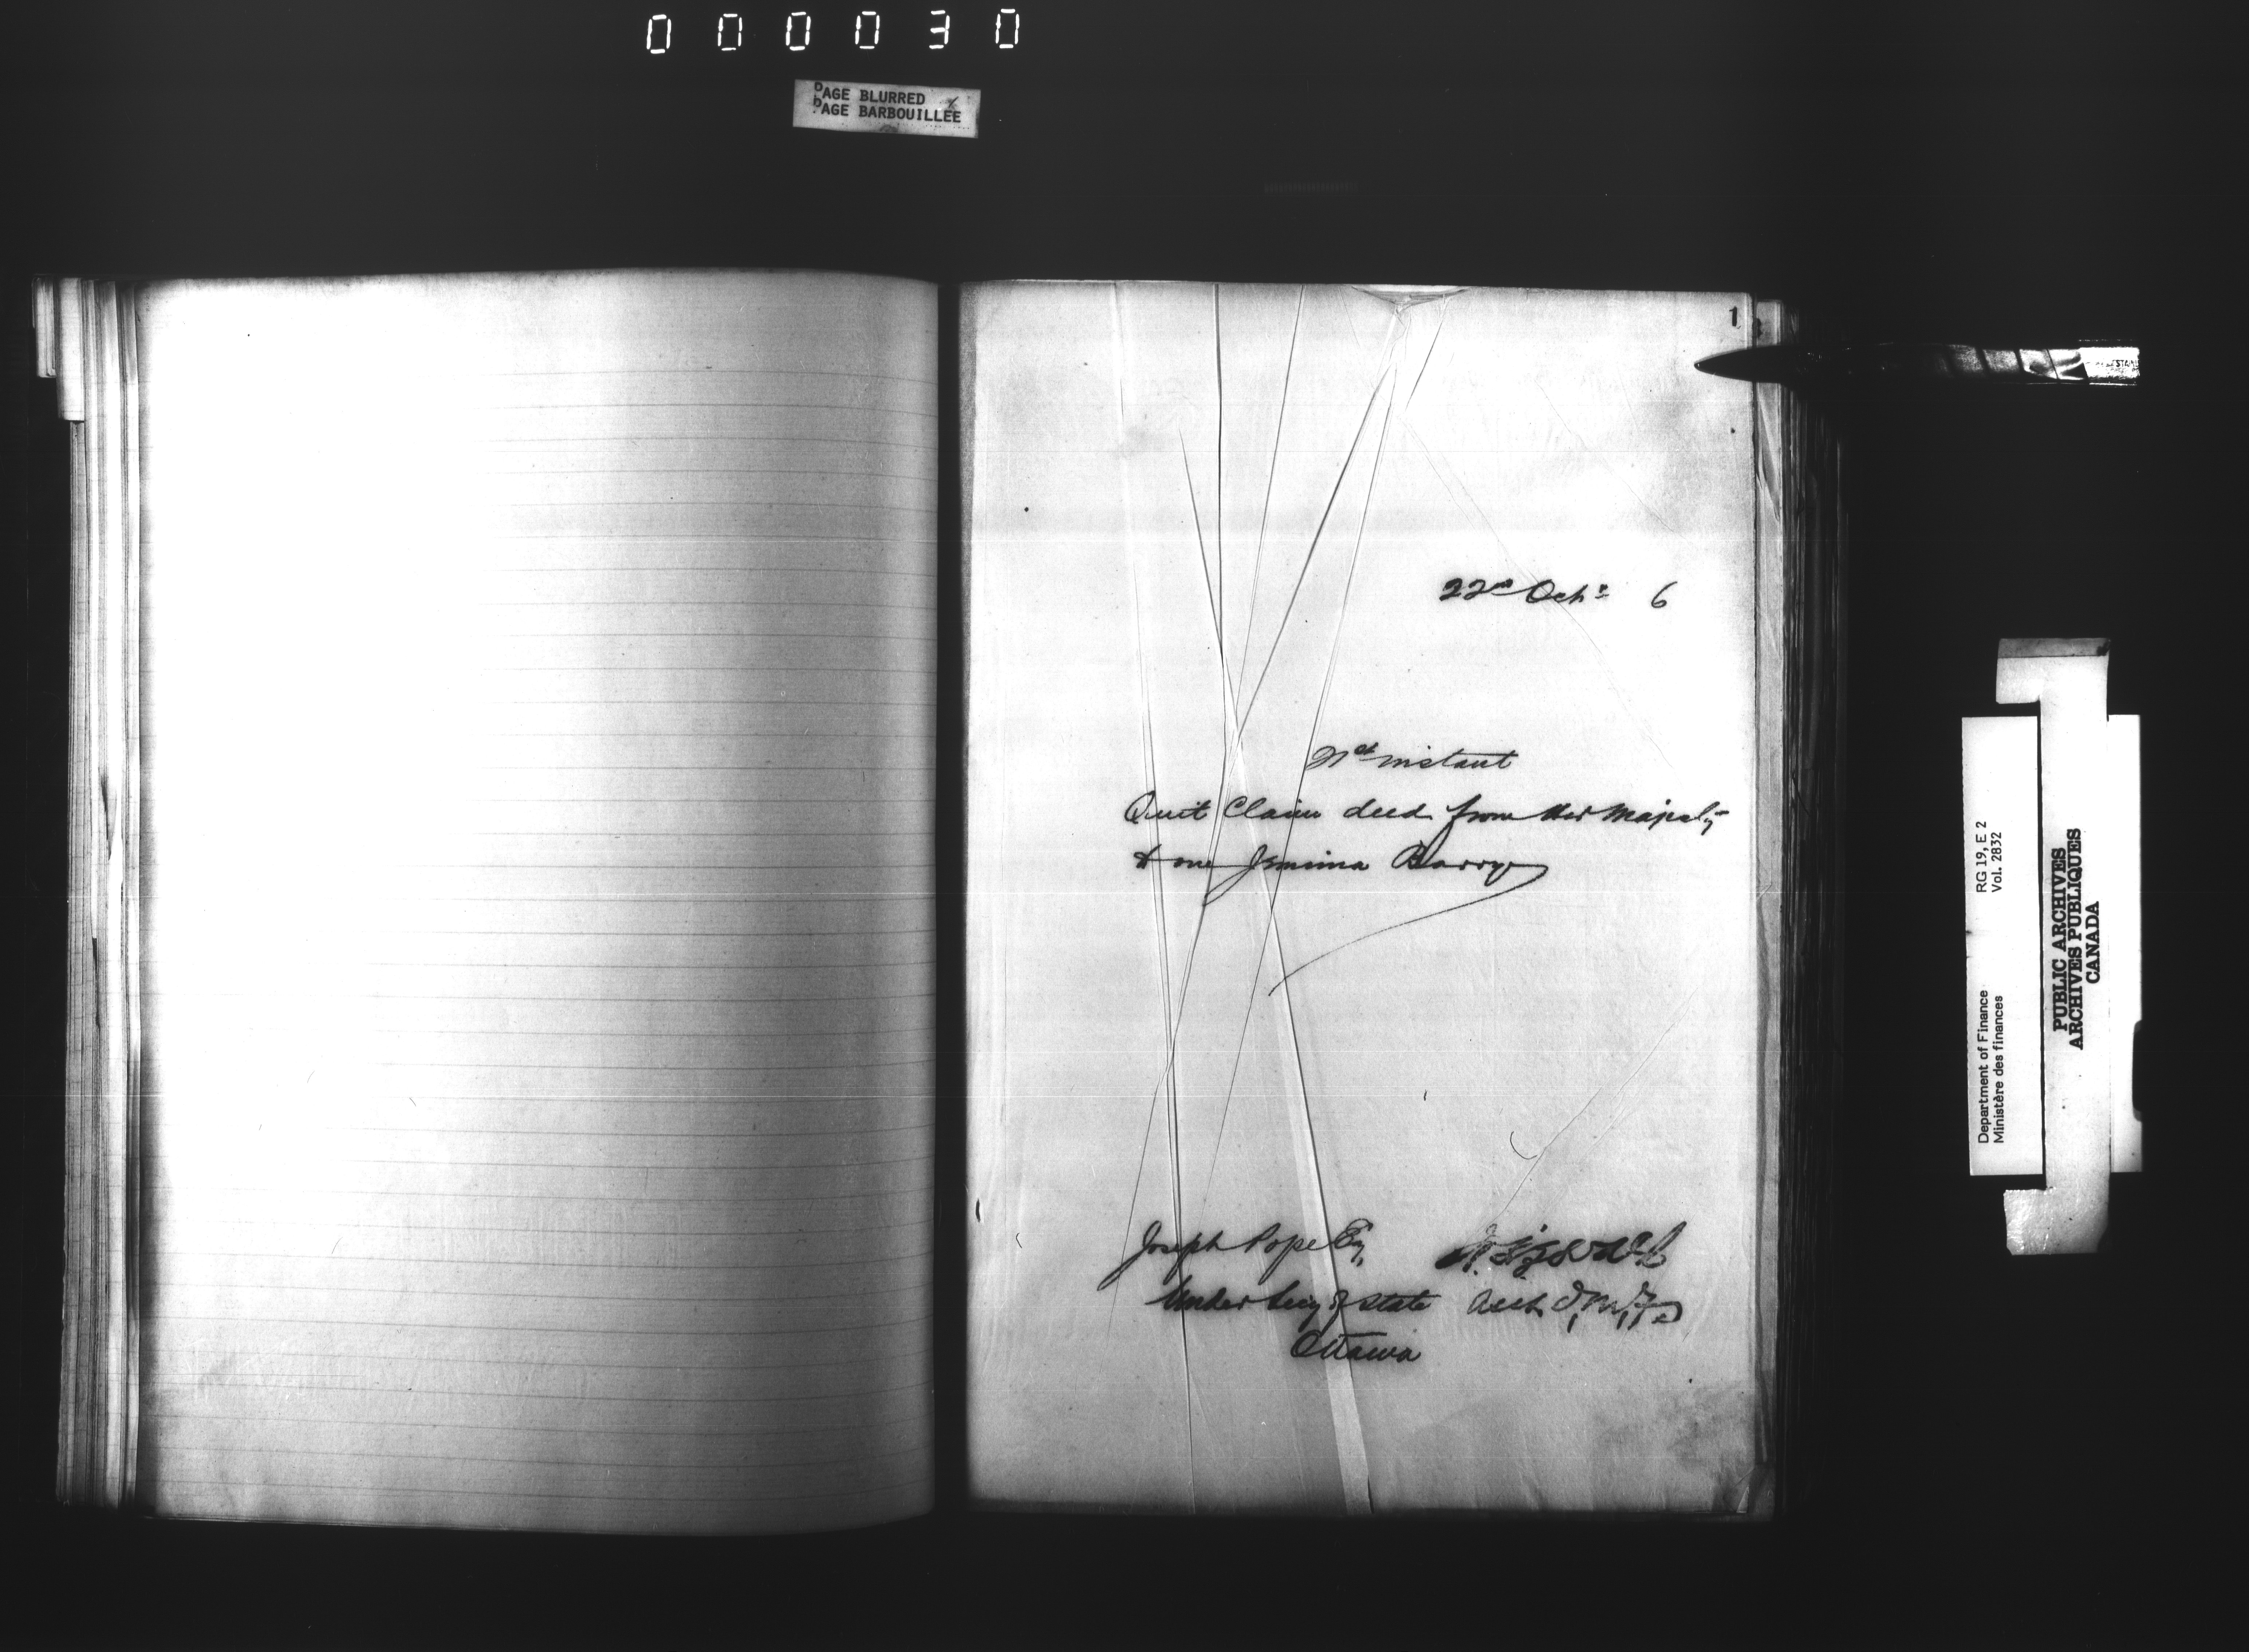 000030
PAGE BLURRED
PAGE BARBOUILLÉE
1
22nd Octr 6
21st instant
Quit Claim deed from Her Majesty
to one Jemima Barry
Joseph Pope Esq,
Under Secy of State Asst D, M, F,
Ottawa
RG 19, E 2
Vol. 2832
Department of Finance
Ministère des finances
PUBLIC ARCHIVES
ARCHIVES PUBLIQUES
CANADA